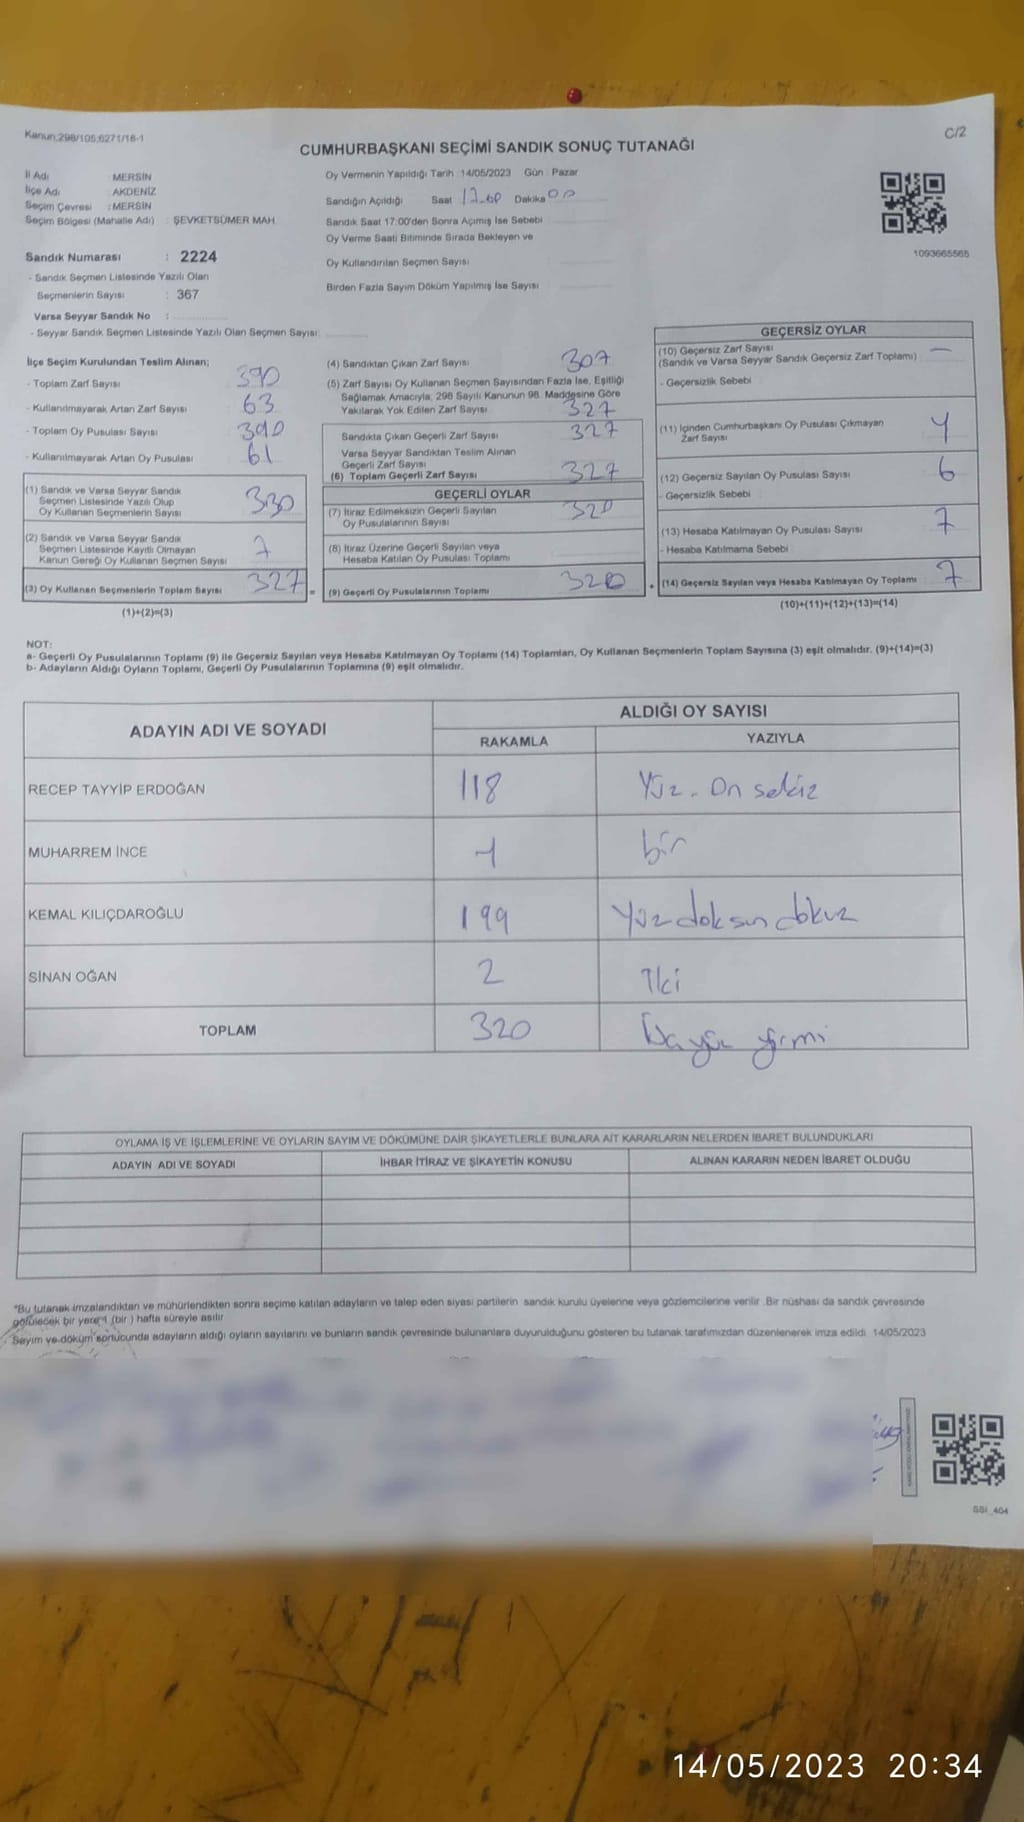 Kanun:298/105;6271/16-1
C/2
CUMHURBAŞKANI SEÇİMİ SANDIK SONUÇ TUTANAĞI
İl Adı : MERSİN
İlçe Adı : AKDENİZ
Seçim Çevresi : MERSİN
Seçim Bölgesi (Mahalle Adı) : ŞEVKETSÜMER MAH.
Sandık Numarası : 2224
- Sandık Seçmen Listesinde Yazılı Olan
Seçmenlerin Sayısı : 367
Varsa Seyyar Sandık No :
- Seyyar Sandık Seçmen Listesinde Yazılı Olan Seçmen Sayısı:
Oy Vermenin Yapıldığı Tarih : 14/05/2023 Gün : Pazar
Sandığın Açıldığı Saat 17.00 Dakika 00
Sandık Saat 17:00'den Sonra Açımış İse Sebebi
Oy Verme Saati Bitiminde Sırada Bekleyen ve
Oy Kullandırılan Seçmen Sayısı
Birden Fazla Sayım Döküm Yapılmış İse Sayısı
1093665565
İlçe Seçim Kurulundan Teslim Alınan;
- Toplam Zarf Sayısı 390
- Kullanılmayarak Artan Zarf Sayısı 63
- Toplam Oy Pusulası Sayısı 390
- Kullanılmayarak Artan Oy Pusulası 61
(1) Sandık ve Varsa Seyyar Sandık
Seçmen Listesinde Yazılı Olup
Oy Kullanan Seçmenlerin Sayısı 330
(2) Sandık ve Varsa Seyyar Sandık
Seçmen Listesinde Kayıtlı Olmayan
Kanun Gereği Oy Kullanan Seçmen Sayısı 7
(3) Oy Kullanan Seçmenlerin Toplam Sayısı 327 =
(1)+(2)=(3)
(4) Sandıktan Çıkan Zarf Sayısı 307
(5) Zarf Sayısı Oy Kullanan Seçmen Sayısından Fazla İse, Eşitliği
Sağlamak Amacıyla; 298 Sayılı Kanunun 98. Maddesine Göre
Yakılarak Yok Edilen Zarf Sayısı 327
Sandıkta Çıkan Geçerli Zarf Sayısı 327
Varsa Seyyar Sandıktan Teslim Alınan
Geçerli Zarf Sayısı
(6) Toplam Geçerli Zarf Sayısı 327
GEÇERLİ OYLAR
(7) İtiraz Edilmeksizin Geçerli Sayılan
Oy Pusulalarının Sayısı 320
(8) İtiraz Üzerine Geçerli Sayılan veya
Hesaba Katılan Oy Pusulası Toplamı
(9) Geçerli Oy Pusulalarının Toplamı 320 +
GEÇERSİZ OYLAR
(10) Geçersiz Zarf Sayısı —
(Sandık ve Varsa Seyyar Sandık Geçersiz Zarf Toplamı)
- Geçersizlik Sebebi
(11) İçinden Cumhurbaşkanı Oy Pusulası Çıkmayan
Zarf Sayısı
(12) Geçersiz Sayılan Oy Pusulası Sayısı 6
- Geçersizlik Sebebi
(13) Hesaba Katılmayan Oy Pusulası Sayısı 7
- Hesaba Katılmama Sebebi
(14) Geçersiz Sayılan veya Hesaba Katılmayan Oy Toplamı 7
(10)+(11)+(12)+(13)=(14)
NOT:
a- Geçerli Oy Pusulalarının Toplamı (9) ile Geçersiz Sayılan veya Hesaba Katılmayan Oy Toplamı (14) Toplamları, Oy Kullanan Seçmenlerin Toplam Sayısına (3) eşit olmalıdır. (9)+(14)=(3)
b- Adayların Aldığı Oyların Toplamı, Geçerli Oy Pusulalarının Toplamına (9) eşit olmalıdır.
ADAYIN ADI VE SOYADI ALDIĞI OY SAYISI
RAKAMLA YAZIYLA
RECEP TAYYİP ERDOĞAN 118 Yüz. On sekiz
MUHARREM İNCE 1 bir
KEMAL KILIÇDAROĞLU 199 Yüz doksan dokuz
SİNAN OĞAN 2 İki
TOPLAM 320 yüz yirmi
OYLAMA İŞ VE İŞLEMLERİNE VE OYLARIN SAYIM VE DÖKÜMÜNE DAİR ŞİKAYETLERLE BUNLARA AİT KARARLARIN NELERDEN İBARET BULUNDUKLARI
ADAYIN ADI VE SOYADI İHBAR İTİRAZ VE ŞİKAYETİN KONUSU ALINAN KARARIN NEDEN İBARET OLDUĞU
*Bu tutanak imzalandıktan ve mühürlendikten sonra seçime katılan adayların ve talep eden siyasi partilerin sandık kurulu üyelerine veya gözlemcilerine verilir .Bir nüshası da sandık çevresinde
görülecek bir yere 1 (bir ) hafta süreyle asılır
Sayım ve döküm sonucunda adayların aldığı oyların sayılarını ve bunların sandık çevresinde bulunanlara duyurulduğunu gösteren bu tutanak tarafımızdan düzenlenerek imza edildi. 14/05/2023
SSI_404
14/05/2023 20:34